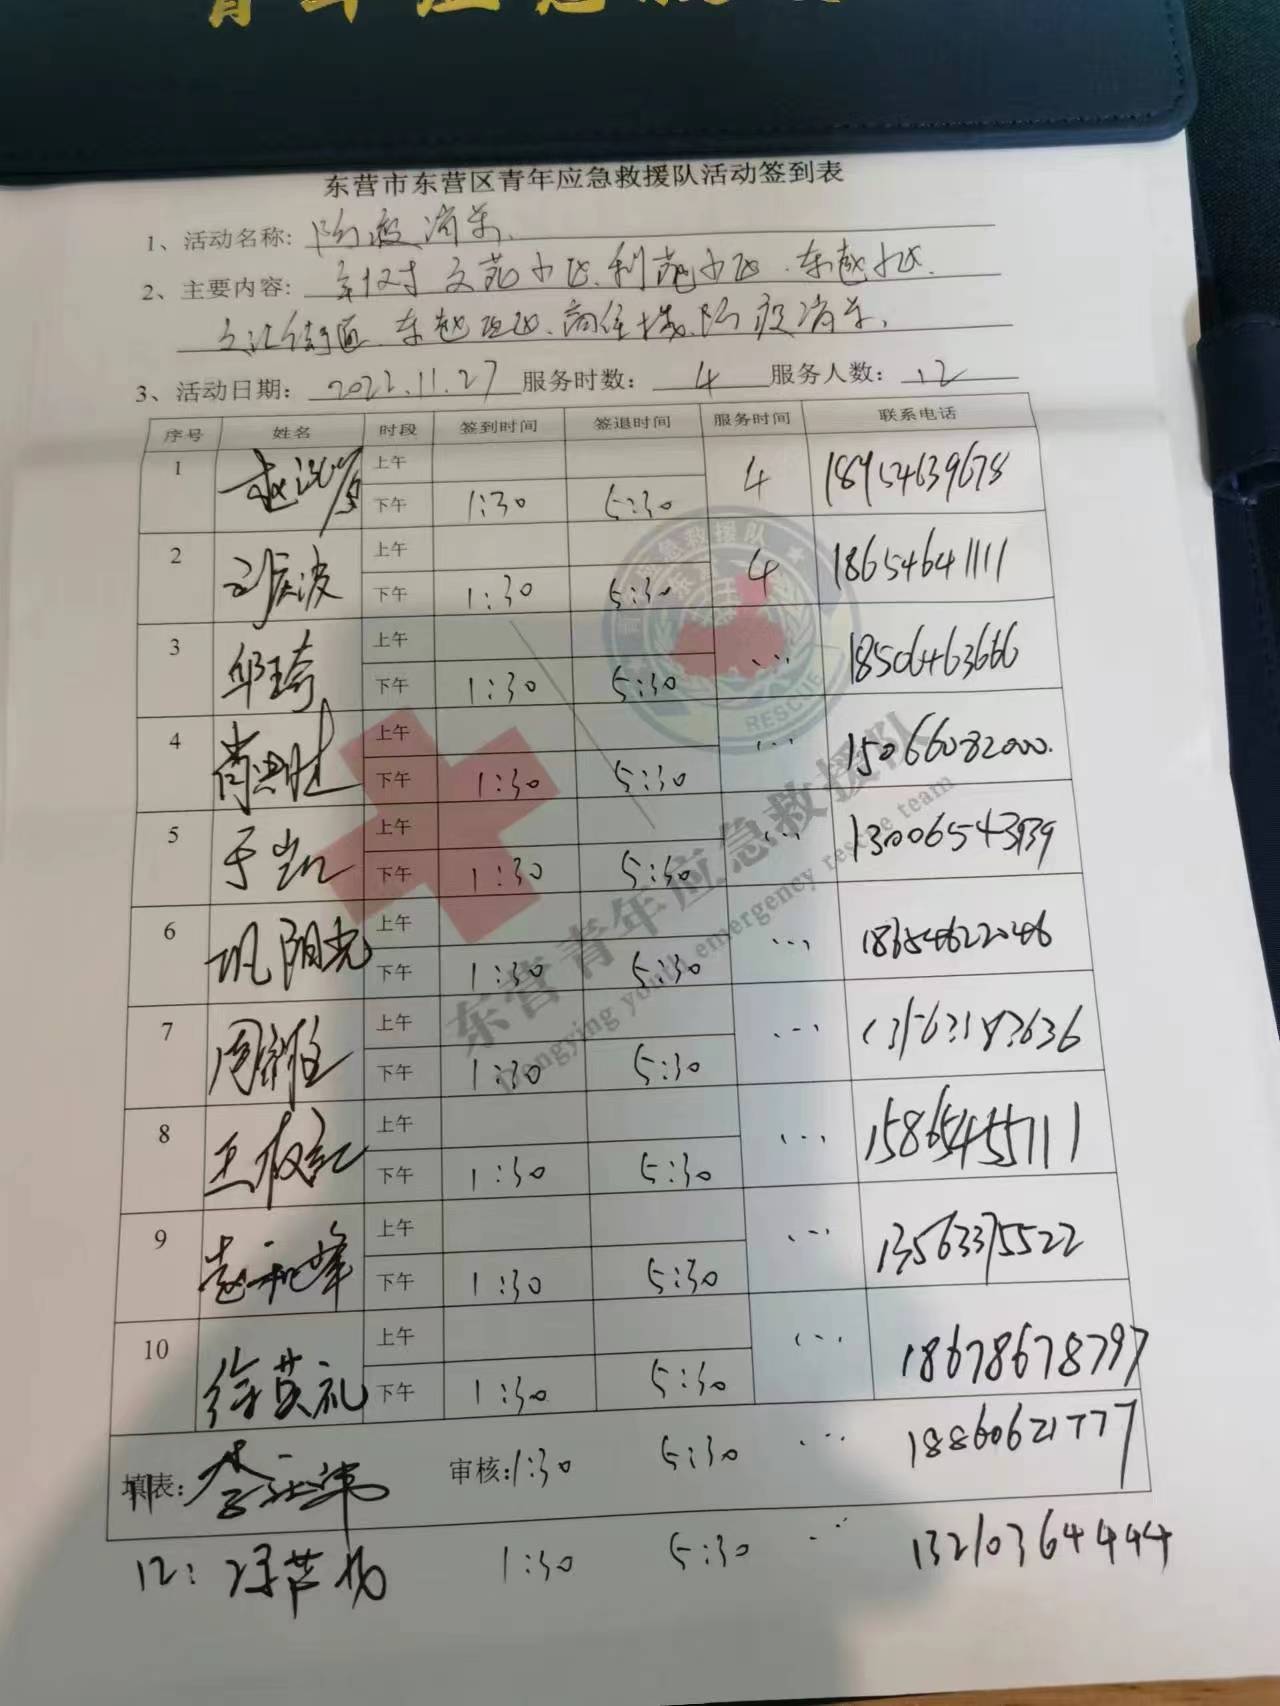 东营市东营区青年应急救援队活动签到表
1、活动名称: 防疫消杀.
2、主要内容: 文苑小区.利苑小区.东赵小区.
文汇街道.东赵 防疫消杀.
3、活动日期: 2022.11.27 服务时数: 4 服务人数: 12
序号 姓名 时段 签到时间 签退时间 服务时间 联系电话
1 上午
下午 1:30 5:30 4 18954639678
2 波 上午
下午 1:30 5:30 4 18654641111
3 邱琦 上午
下午 1:30 5:30 ... 18506463666
4 上午
下午 1:30 5:30 ... 15066082000.
5 于凯 上午
下午 1:30 5:30 ... 13006543939
6 巩阳光 上午
下午 1:30 5:30 ... 18654622046
7 周 上午
下午 1:30 5:30 ... 13563183636
8 王 上午
下午 1:30 5:30 ... 15865455711
9 峰 上午
下午 1:30 5:30 ... 13563375522
10 徐英礼 上午
下午 1:30 5:30 ... 18678678797
填表: 11 李 审核: 1:30 5:30 ... 18860621777
12: 1:30 5:30 ... 13210364444
青年应急救援队
RESCUE
东营青年应急救援队
Dongying youth emergency rescue team